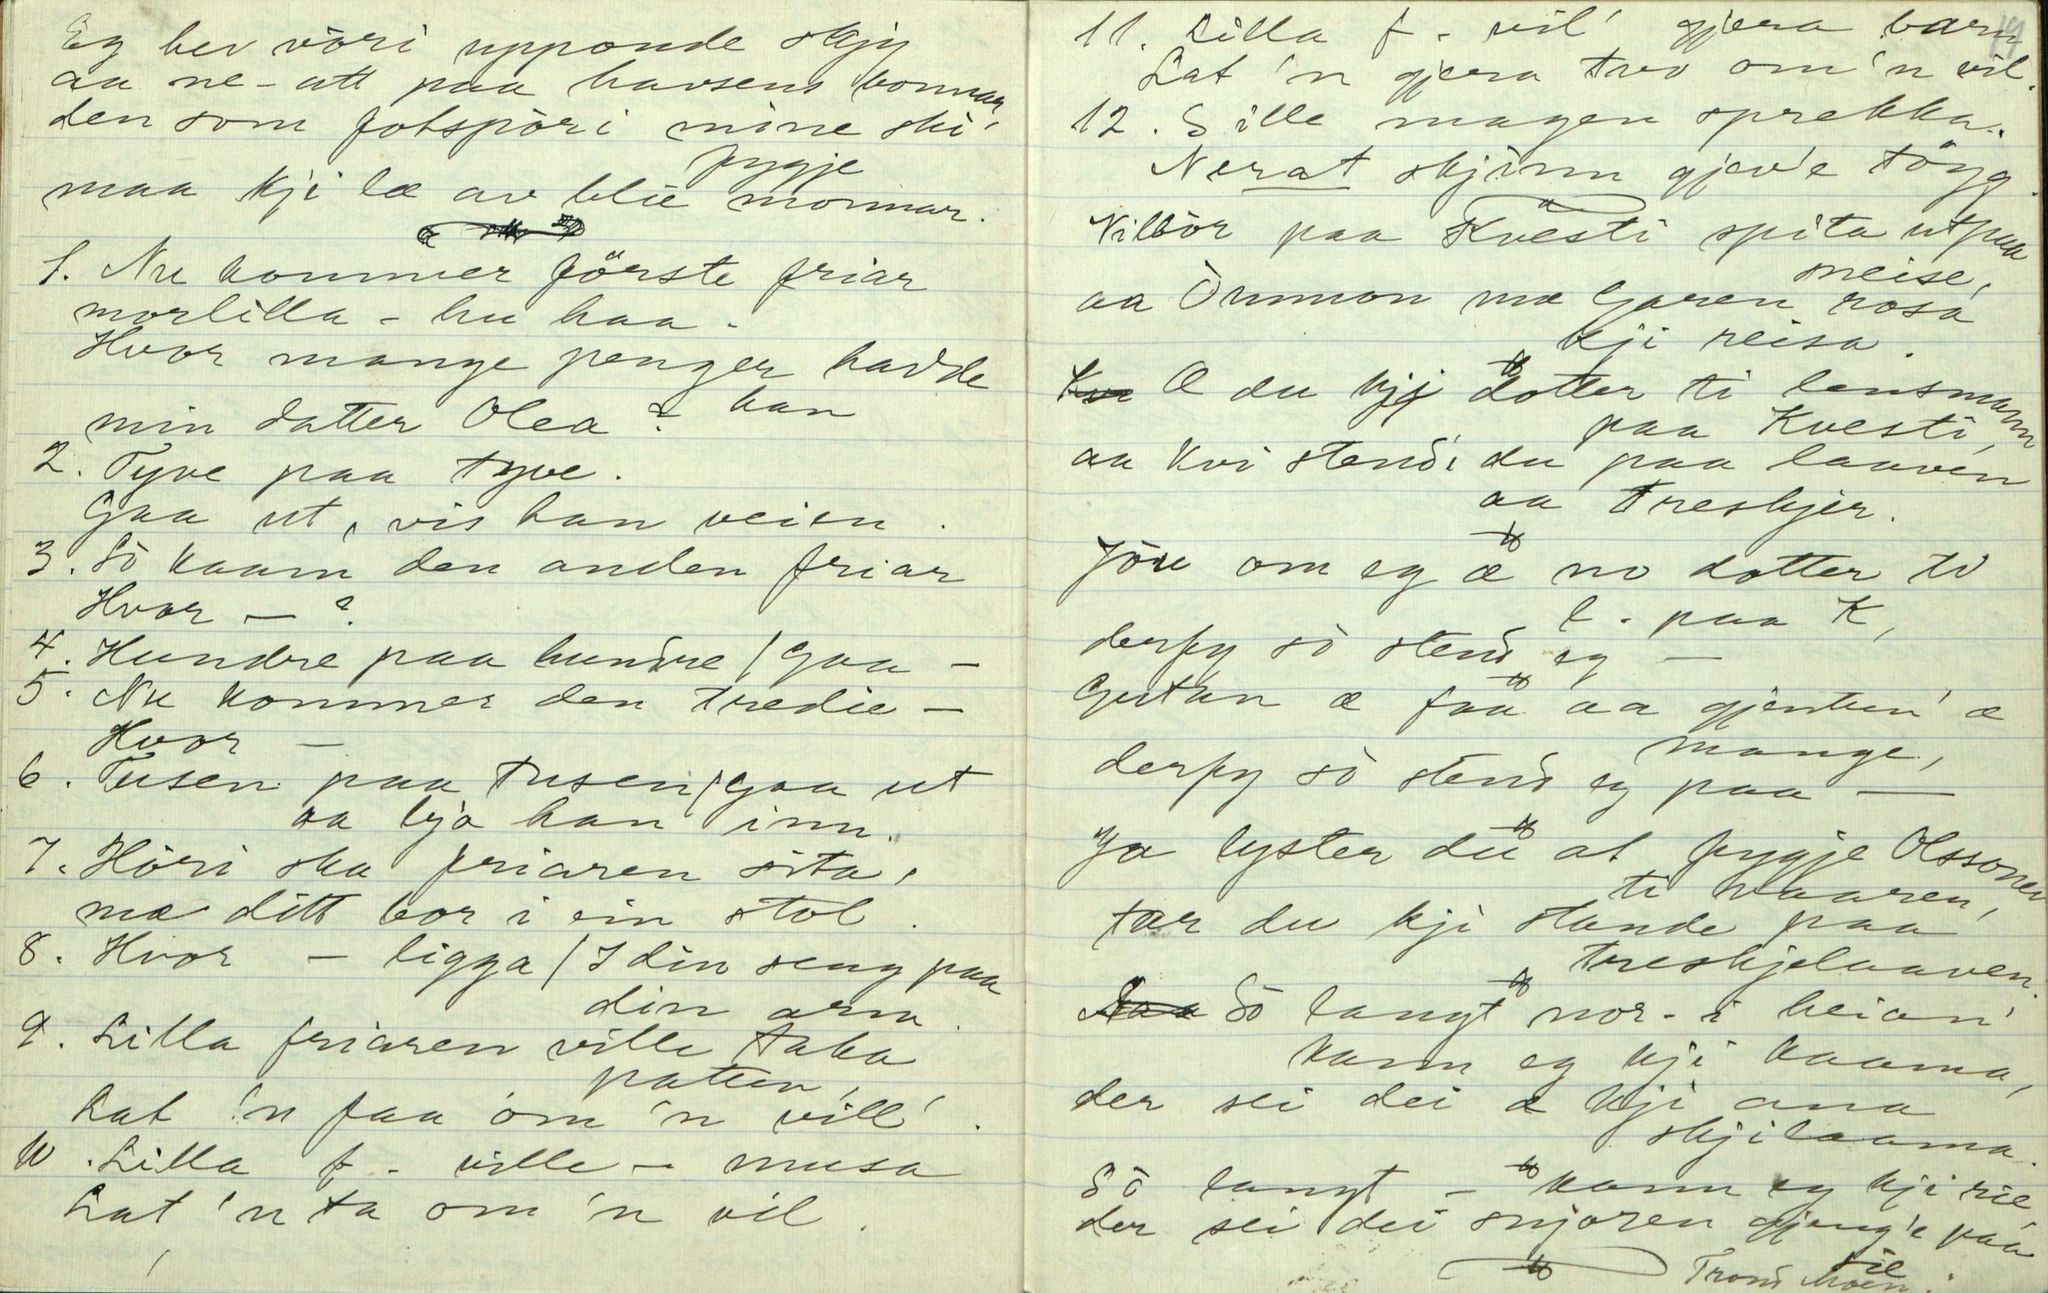 Eg hev vòri upponde skjy
aa ne-att paa havsens bonnar,
den som fotspòri mine ski
maa kji læ av blie pygje monnar.
1. Nu kommer förste friar
morlilla – hu haa.
Hvor mange penger hadde han
min datter Olea?
2. Tyve paa tyve.
Gaa ut, vis han veien.
3. Sò kaam den anden friar
Hvor – ?
4. Hundre paa hundre / Gaa –
5. Nu kommer den tredie –
Hvor –
6. Tusen paa tusen / gaa ut
aa bjo han inn.
7. Höri ska friaren sita,
mæ ditt bor i ein stol.
8. Hvor – ligga / I din seng paa
din arm.
9. Lilla friaren ville taka
patten,
Lat 'n faa om 'n vill'.
10. Lilla f. ville – musa
Lat 'n ta om 'n vil.
19
11. Lilla f. vil' gjera barn
Lat 'n gjera tvo om 'n vil.
12. Sille magen sprekka.
Nerat skjinn gjev'e töyg.
Vilbòr paa Kvesti spita utpaa
sneise,
aa Òmmon mæ Garen rosa
kji reisa.
Æ du kji dotter ti lensmann
paa Kvesti,
aa kvi stend du paa laaven
aa treskjer.
Jöu om eg æ no dotter ti
l. paa K,
derfy sò stend eg –
Gutan æ faa aa gjentun' æ
mange,
derfy sò stend eg paa –
Ja lyster du at fygje Olssonen
ti vaaren,
tar du kji stande paa
treskjelaaven.
Sò langt nor- i heian'
kann eg kji kaama,
der sei dei æ kji ana
skjilaama.
Sò langt – kann eg kji rie,
der sei dei snjoren gjeng'e paa
sie.
Trond Moen.